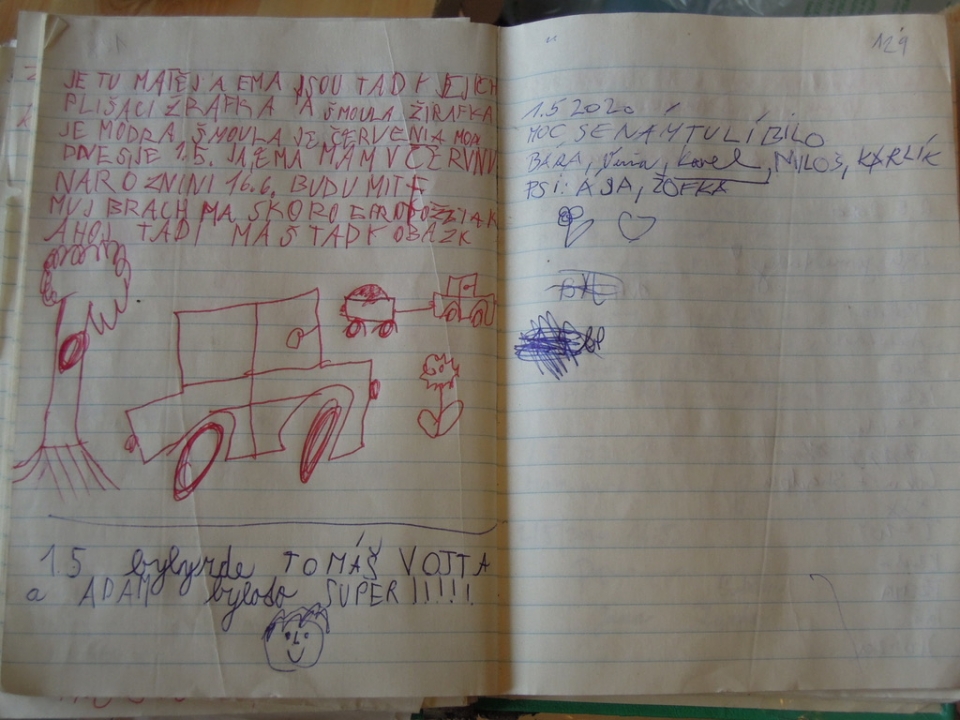 JE TU MATĚJ A EMA JSOU TAD K JEJICH
PLIŠACI ŽRAFKA A ŠMOULA ŽIRAFKA
JE MODRA, ŠMOULA JE ČERVENIA
DNES JE 1.5. JA EMA MAM V ČERVNU
NAROZNINI 16.6. BUDU MIT
MUJ BRACH MA SKORO
AHOJ TADI MAŠ TADK OBAZK
1.5 bylyzde TOMÁŠ VOJTA
a ADAM byloto SUPER !!!!!
129
1.5 2020
MOC SE NÁM TU LÍBILO
BÁRA, Karel, MILOŠ, KARLÍK
PSI: AJA, ŽOFKA